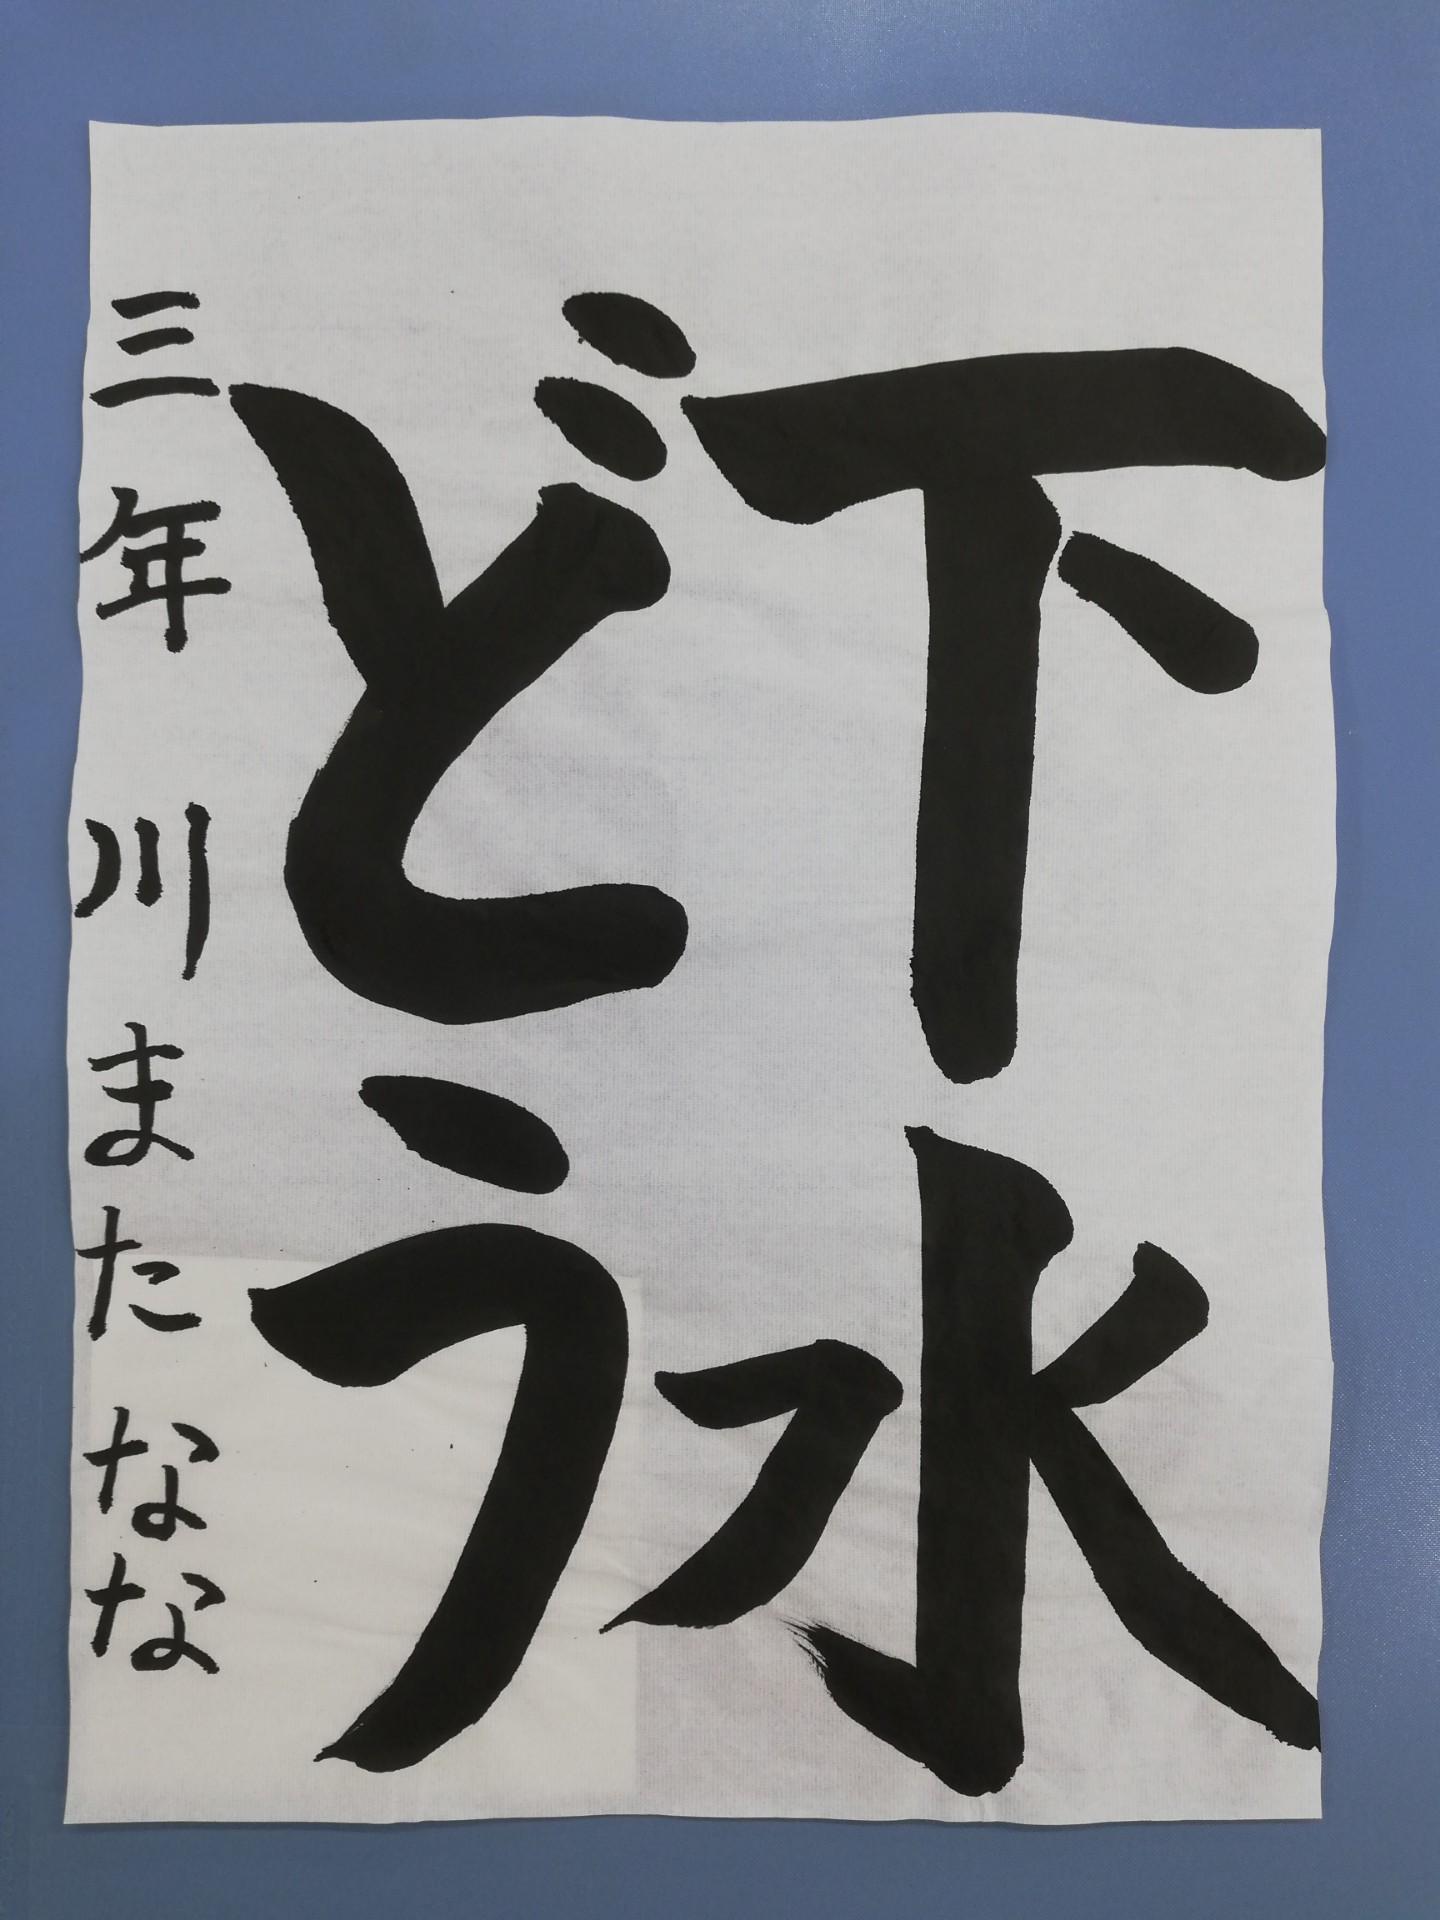 下水
どう
三年 川またなな